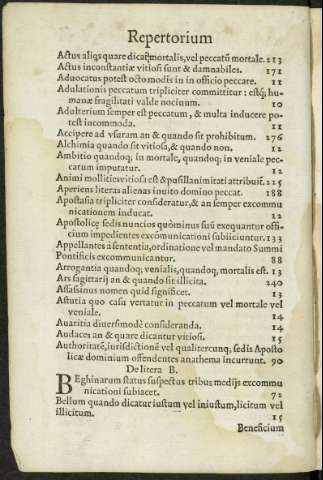 Repertorium
Actus aliqs quare dicat̃ mortalis, vel peccatũ mortale. 213
Actus inconstantiæ vitiosi sunt & damnabiles. 171
Aduocatus potest octo modis in in officio peccare. 11
Adulationis peccatum tripliciter committitur : estq; hu-
manæ fragilitati valde nociuum. 10
Adulterium semper est peccatum, & multa inducere po-
test incommoda. 11
Accipere ad vsuram an & quando sit prohibitum. 276
Alchimia quando sit vitiosa, & quando non. 12
Ambitio quandoq; in mortale, quandoq; in veniale pec-
catum imputatur. 12
Animi mollities vitiosa est & pusillanimitati attribuit̃. 225
Aperiens literas alienas inuito domino peccat. 188
Apostasia tripliciter consideratur, & an semper excommu
nicationem inducat. 12
Apostolicę sedis nuncios quominus suũ exequantur offi-
cium impedientes excõmunicationi subiiciuntur. 133
Appellantes à sententia, ordinatione vel mandato Summi
Pontificis excommunicantur. 88
Arrogantia quandoq; venialis, quandoq; mortalis est. 13
Ars sagittarij an & quando sit illicita. 140
Assassinus nomen quid significet. 13
Astutia quo casu vertatur in peccatum vel mortale vel
veniale. 14
Auaritia diuersimodè consideranda. 14
Audaces an & quare dicantur vitiosi. 15
Authoritatẽ, iurisdictionẽ vel qualitercunq; sedis Aposto
licæ dominium offendentes anathema incurrunt. 90
De litera B.
BEghinarum status suspectus tribus modijs excommu
nicationi subiacet. 72
Bellum quando dicatur iustum vel iniustum, licitum vel
illicitum. 15
Beneficium